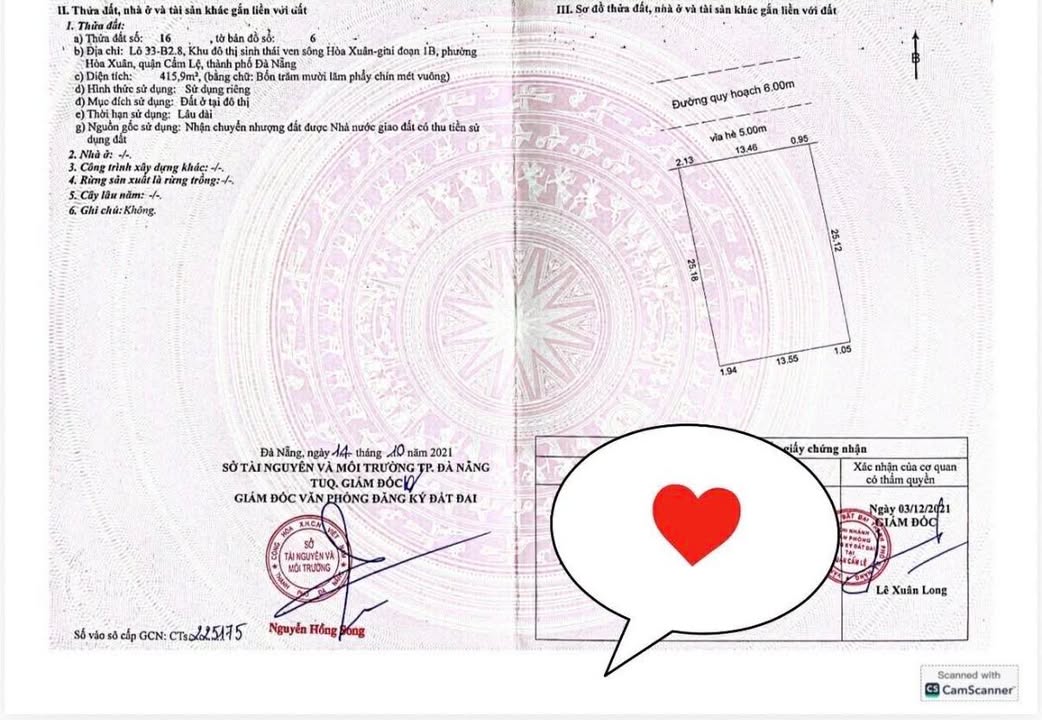 II. Thửa đất, nhà ở và tài sản khác gắn liền với đất
1. Thửa đất:
a) Thửa đất số: 16 , tờ bản đồ số: 6
b) Địa chỉ: Lô 33-B2.8, Khu đô thị sinh thái ven sông Hòa Xuân-giai đoạn 1B, phường
Hòa Xuân, quận Cẩm Lệ, thành phố Đà Nẵng
c) Diện tích: 415,9m², (bằng chữ: Bốn trăm mười lăm phẩy chín mét vuông)
d) Hình thức sử dụng: Sử dụng riêng
đ) Mục đích sử dụng: Đất ở tại đô thị
e) Thời hạn sử dụng: Lâu dài
g) Nguồn gốc sử dụng: Nhận chuyển nhượng đất được Nhà nước giao đất có thu tiền sử
dụng đất
2. Nhà ở: -/-.
3. Công trình xây dựng khác: -/-.
4. Rừng sản xuất là rừng trồng: -/-.
5. Cây lâu năm: -/-.
6. Ghi chú: Không.
Đà Nẵng, ngày 14 tháng 10 năm 2021
SỞ TÀI NGUYÊN VÀ MÔI TRƯỜNG TP. ĐÀ NẴNG
TUQ. GIÁM ĐỐC
GIÁM ĐỐC VĂN PHÒNG ĐĂNG KÝ ĐẤT ĐAI
SỞ
TÀI NGUYÊN VÀ
MÔI TRƯỜNG
Nguyễn Hồng Song
Số vào sổ cấp GCN: CTs 225175
III. Sơ đồ thửa đất, nhà ở và tài sản khác gắn liền với đất
B
Đường quy hoạch 6.00m
vỉa hè 5.00m
2.13 13.46 0.95
25.18
25.12
1.94 13.55 1.05
giấy chứng nhận
Xác nhận của cơ quan
có thẩm quyền
Ngày 03/12/2021
GIÁM ĐỐC
Lê Xuân Long
Scanned with
CS CamScanner